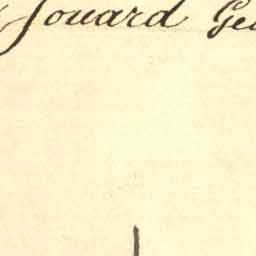 Jouard Ge